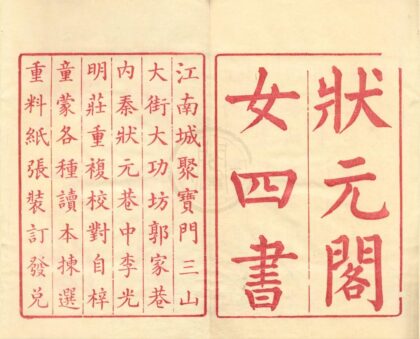 狀元閣
女四書
江南城聚寶門三山
大街大功坊郭家巷
內秦狀元巷中李光
明莊重複校對自梓
童蒙各種讀本揀選
重料紙張裝訂發兌